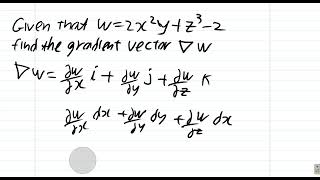 Given that w=2x²y+z³-2
find the gradient vector ∇w
∇w = ∂w/∂x i + ∂w/∂y j + ∂w/∂z k
∂w/∂x dx + ∂w/∂y dy + ∂w/∂z dx